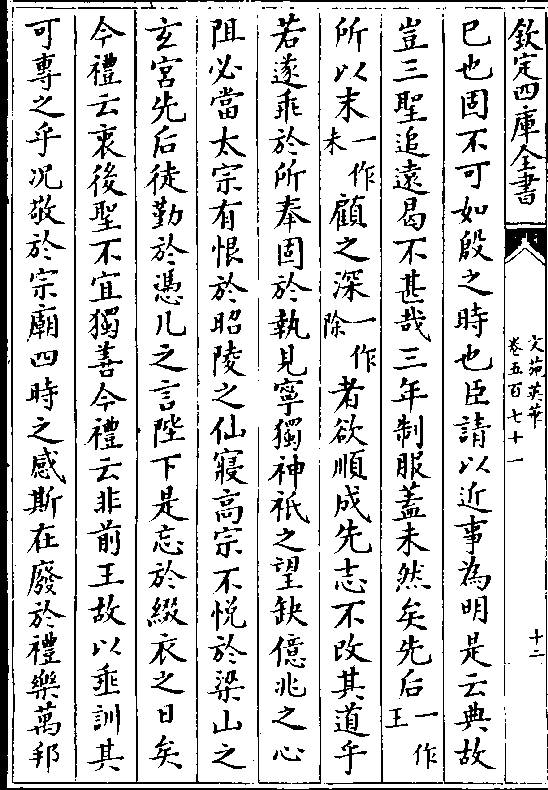 欽定四庫全書
文苑英華
卷五百七十一
十二
已也固不可如殷之時也臣請以近事為明是云典故
豈三聖追遠曷不甚哉三年制服蓋未然矣先后一作王
所以末一作未顧之深一作除者欲順成先志不改其道乎
若遂乖於所奉固於執見寧獨神祇之望缺億兆之心
阻必當太宗有恨於昭陵之仙寢高宗不悅於梁山之
玄宮先后徒勤於憑几之言陛下是忘於綴衣之日矣
今禮云衷後聖不宜獨善今禮云非前王故以垂訓其
可專之乎况敬於宗廟四時之感斯在廢於禮樂萬邦